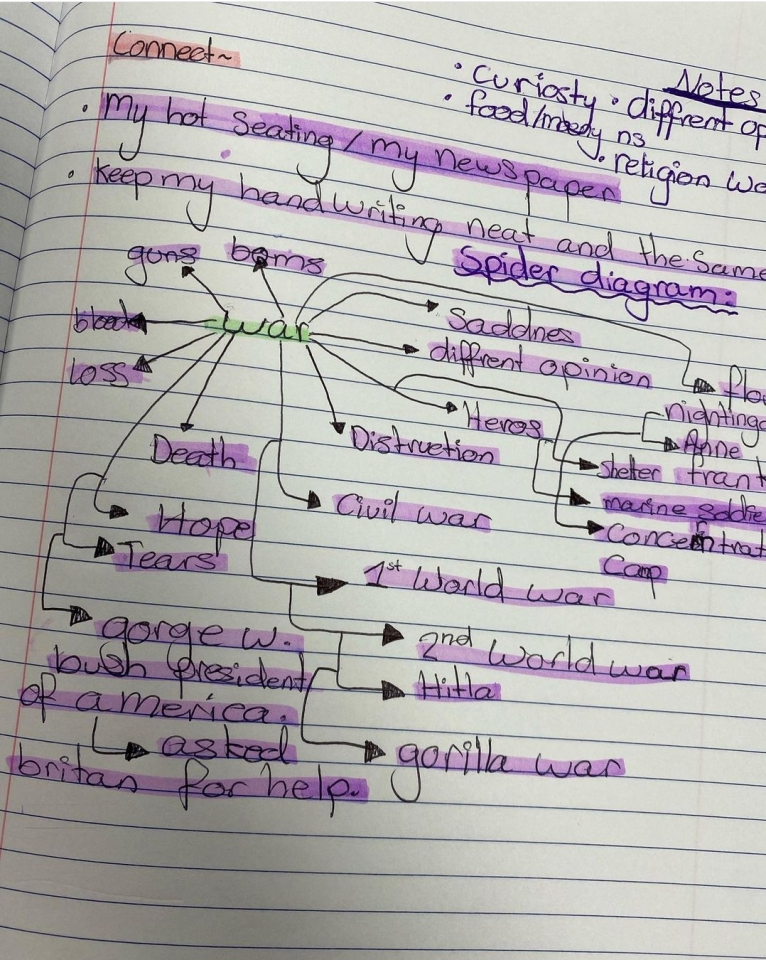 Connect~
Notes
• curiosty • diffrent op
• food/
• religion
• My hot Seating / my newspaper
• keep my handwriting neat and the same
Spider diagram:
guns
boms
war
Saddnes
blood
diffrent opinion
flo
Loss
nightinga
Heros
Anne
frank
Death
Distruction
shelter
marine soldie
Hope
Civil war
Concentrat
Camp
Tears
1st World war
gorge w.
bush president
of america.
2nd world war
Hitla
asked
britan for help.
gorilla war